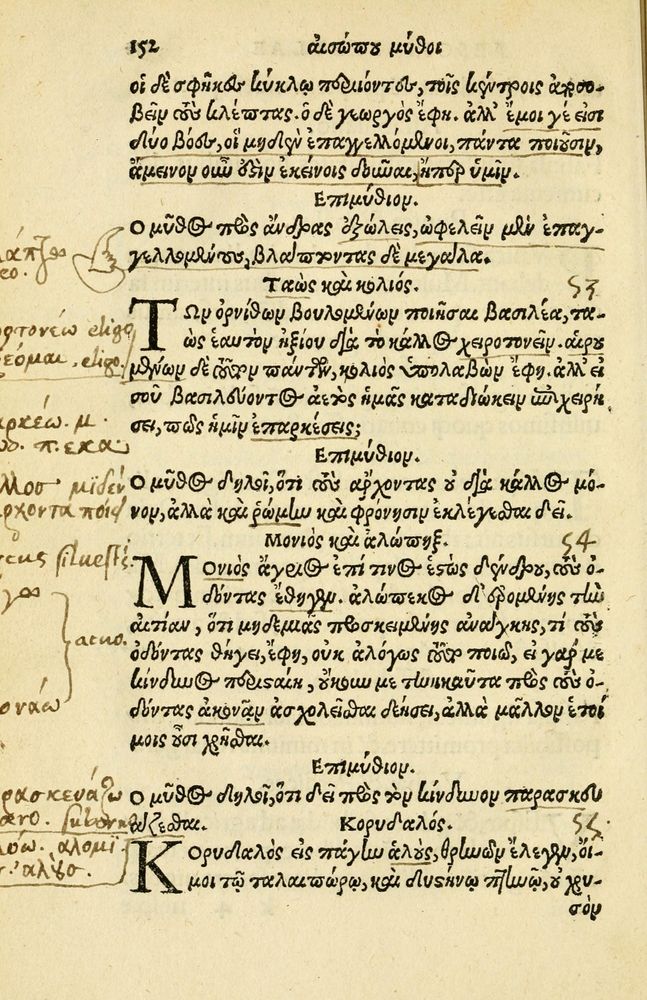 152 αἰσώπου μῦθοι
οἱ δὲ σφῆκες κύκλῳ περιιόντες, τοῖς κέντροις ἀποσο-
βεῖν τοὺς κλέπτας. ὁ δὲ γεωργὸς ἔφη. ἀλλ' ἔμοι γέ εἰσι
δύο βόες, οἳ μηδὲν ἐπαγγελλόμενοι, πάντα ποιοῦσιν,
ἄμεινον οὖν ὅτιν ἐκείνοις δοῦναι, ἤπερ ὑμῖν.
Επιμύθιον.
Ο μῦθος πρὸς ἄνδρας ἐξώλεις, ὠφελεῖν μὲν ἐπαγ-
γελλομένους, βλάπτοντας δὲ μεγάλα.
Ταὼς καὶ κολιός. 53
Τῶν ὀρνίθων βουλομένων ποιῆσαι βασιλέα, τα-
ὼς ἑαυτὸν ἠξίου διὰ τὸ κάλλος χειροτονεῖν. αἱρου
μένων δὲ τοῦτον πάντων, κολιὸς ὑπολαβὼν ἔφη. ἀλλ' εἰ
σοῦ βασιλεύοντος ἀετὸς ἡμᾶς καταδιώκειν ἐπιχειρή
σει, πῶς ἡμῖν ἐπαρκέσεις;
Επιμύθιον.
Ο μῦθος δηλοῖ, ὅτι τοὺς ἄρχοντας οὐ διὰ κάλλος μό-
νον, ἀλλὰ καὶ ῥώμην καὶ φρόνησιν ἐκλέγεσθαι δεῖ.
Μονιὸς καὶ ἀλώπηξ. 54
Μονιὸς ἄγριος ἐπί τινος ἑστὼς δένδρου, τοὺς ὀ-
δόντας ἔθηγεν. ἀλώπεκος δ' ἐρομένης τὴν
αἰτίαν, ὅτι μηδεμιᾶς προσκειμένης ἀνάγκης, τί τοὺς
ὀδόντας θήγει, ἔφη, οὐκ ἀλόγως τοῦτο ποιῶ, εἰ γάρ με
κίνδυνος περισταίη, οὐκ οὖν με τηνικαῦτα πρὸς τοὺς ὀ-
δόντας ἀκονᾷν ἀσχολεῖσθαι δεήσει, ἀλλὰ μᾶλλον ἑτοί
μοις οὖσι χρῆσθαι.
Επιμύθιον.
Ο μῦθος δηλοῖ, ὅτι δεῖ πρὸς τὸν κίνδυνον παρασκευ
άζεσθαι. Κορυδαλός. 55
Κορυδαλὸς εἰς πάγην ἁλοὺς, θρηνῶν ἔλεγεν, οἴ-
μοι τῷ ταλαιπώρῳ, καὶ δυστήνῳ πτηνῷ, οὐ χρυ-
σὸν
eligo
εόμαι. eligo.
αρκέω. μ.
acuo.
ρασκευάζω